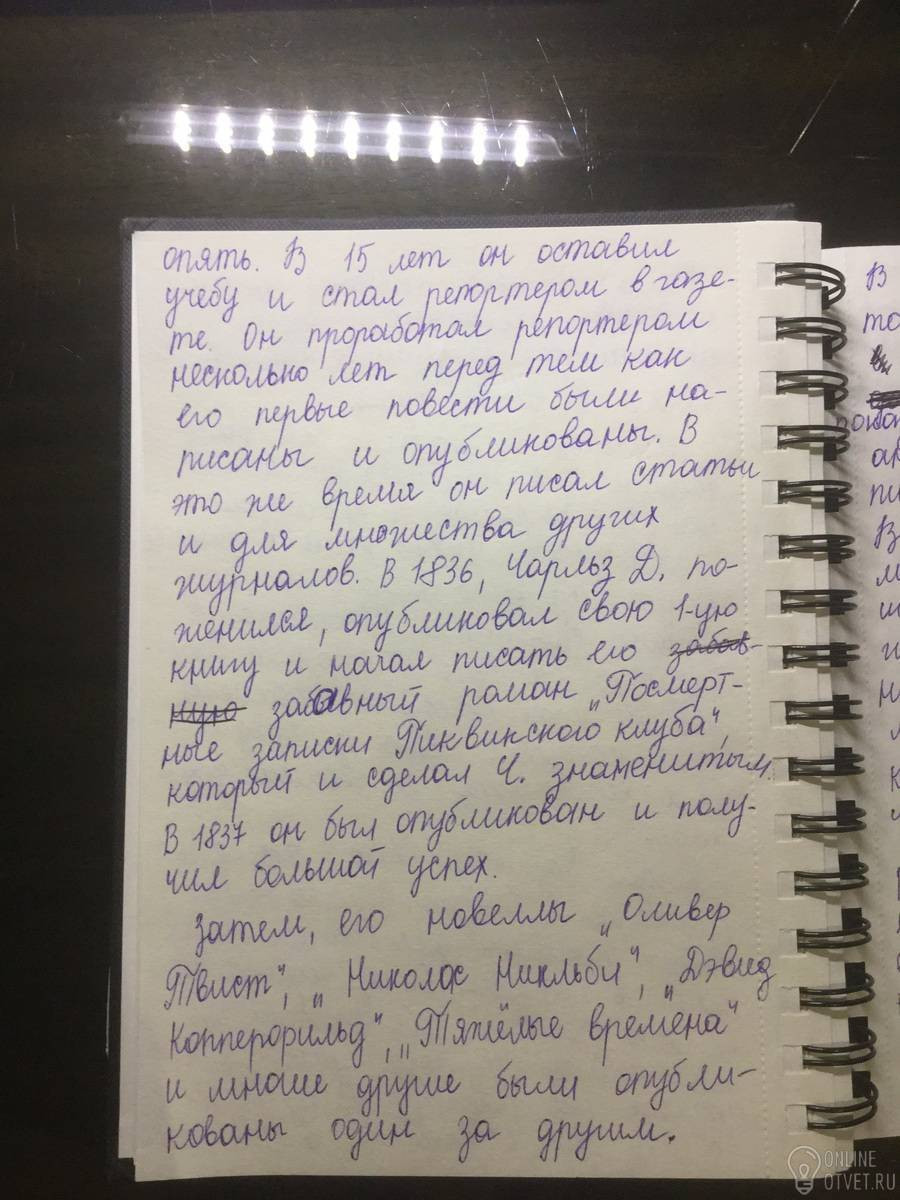 опять. В 15 лет он оставил
учебу и стал репортером в газе-
те. Он проработал репортером
несколько лет перед тем как
его первые повести были на-
писаны и опубликованы. В
это же время он писал статьи
и для множества других
журналов. В 1836, Чарльз Д. по-
женился, опубликовал свою 1-ую
книгу и начал писать его забав-
ную забавный роман „Посмерт-
ные записки Пиквинского клуба",
который и сделал Ч. знаменитым.
В 1837 он был опубликован и полу-
чил большой успех.
Затем, его новеллы „Оливер
Твист", „Николас Никльби", „Дэвид
Копперфильд", „Тяжёлые времена"
и многие другие были опубли-
кованы один за другим.
В
то
ONLINE
OTVET.RU